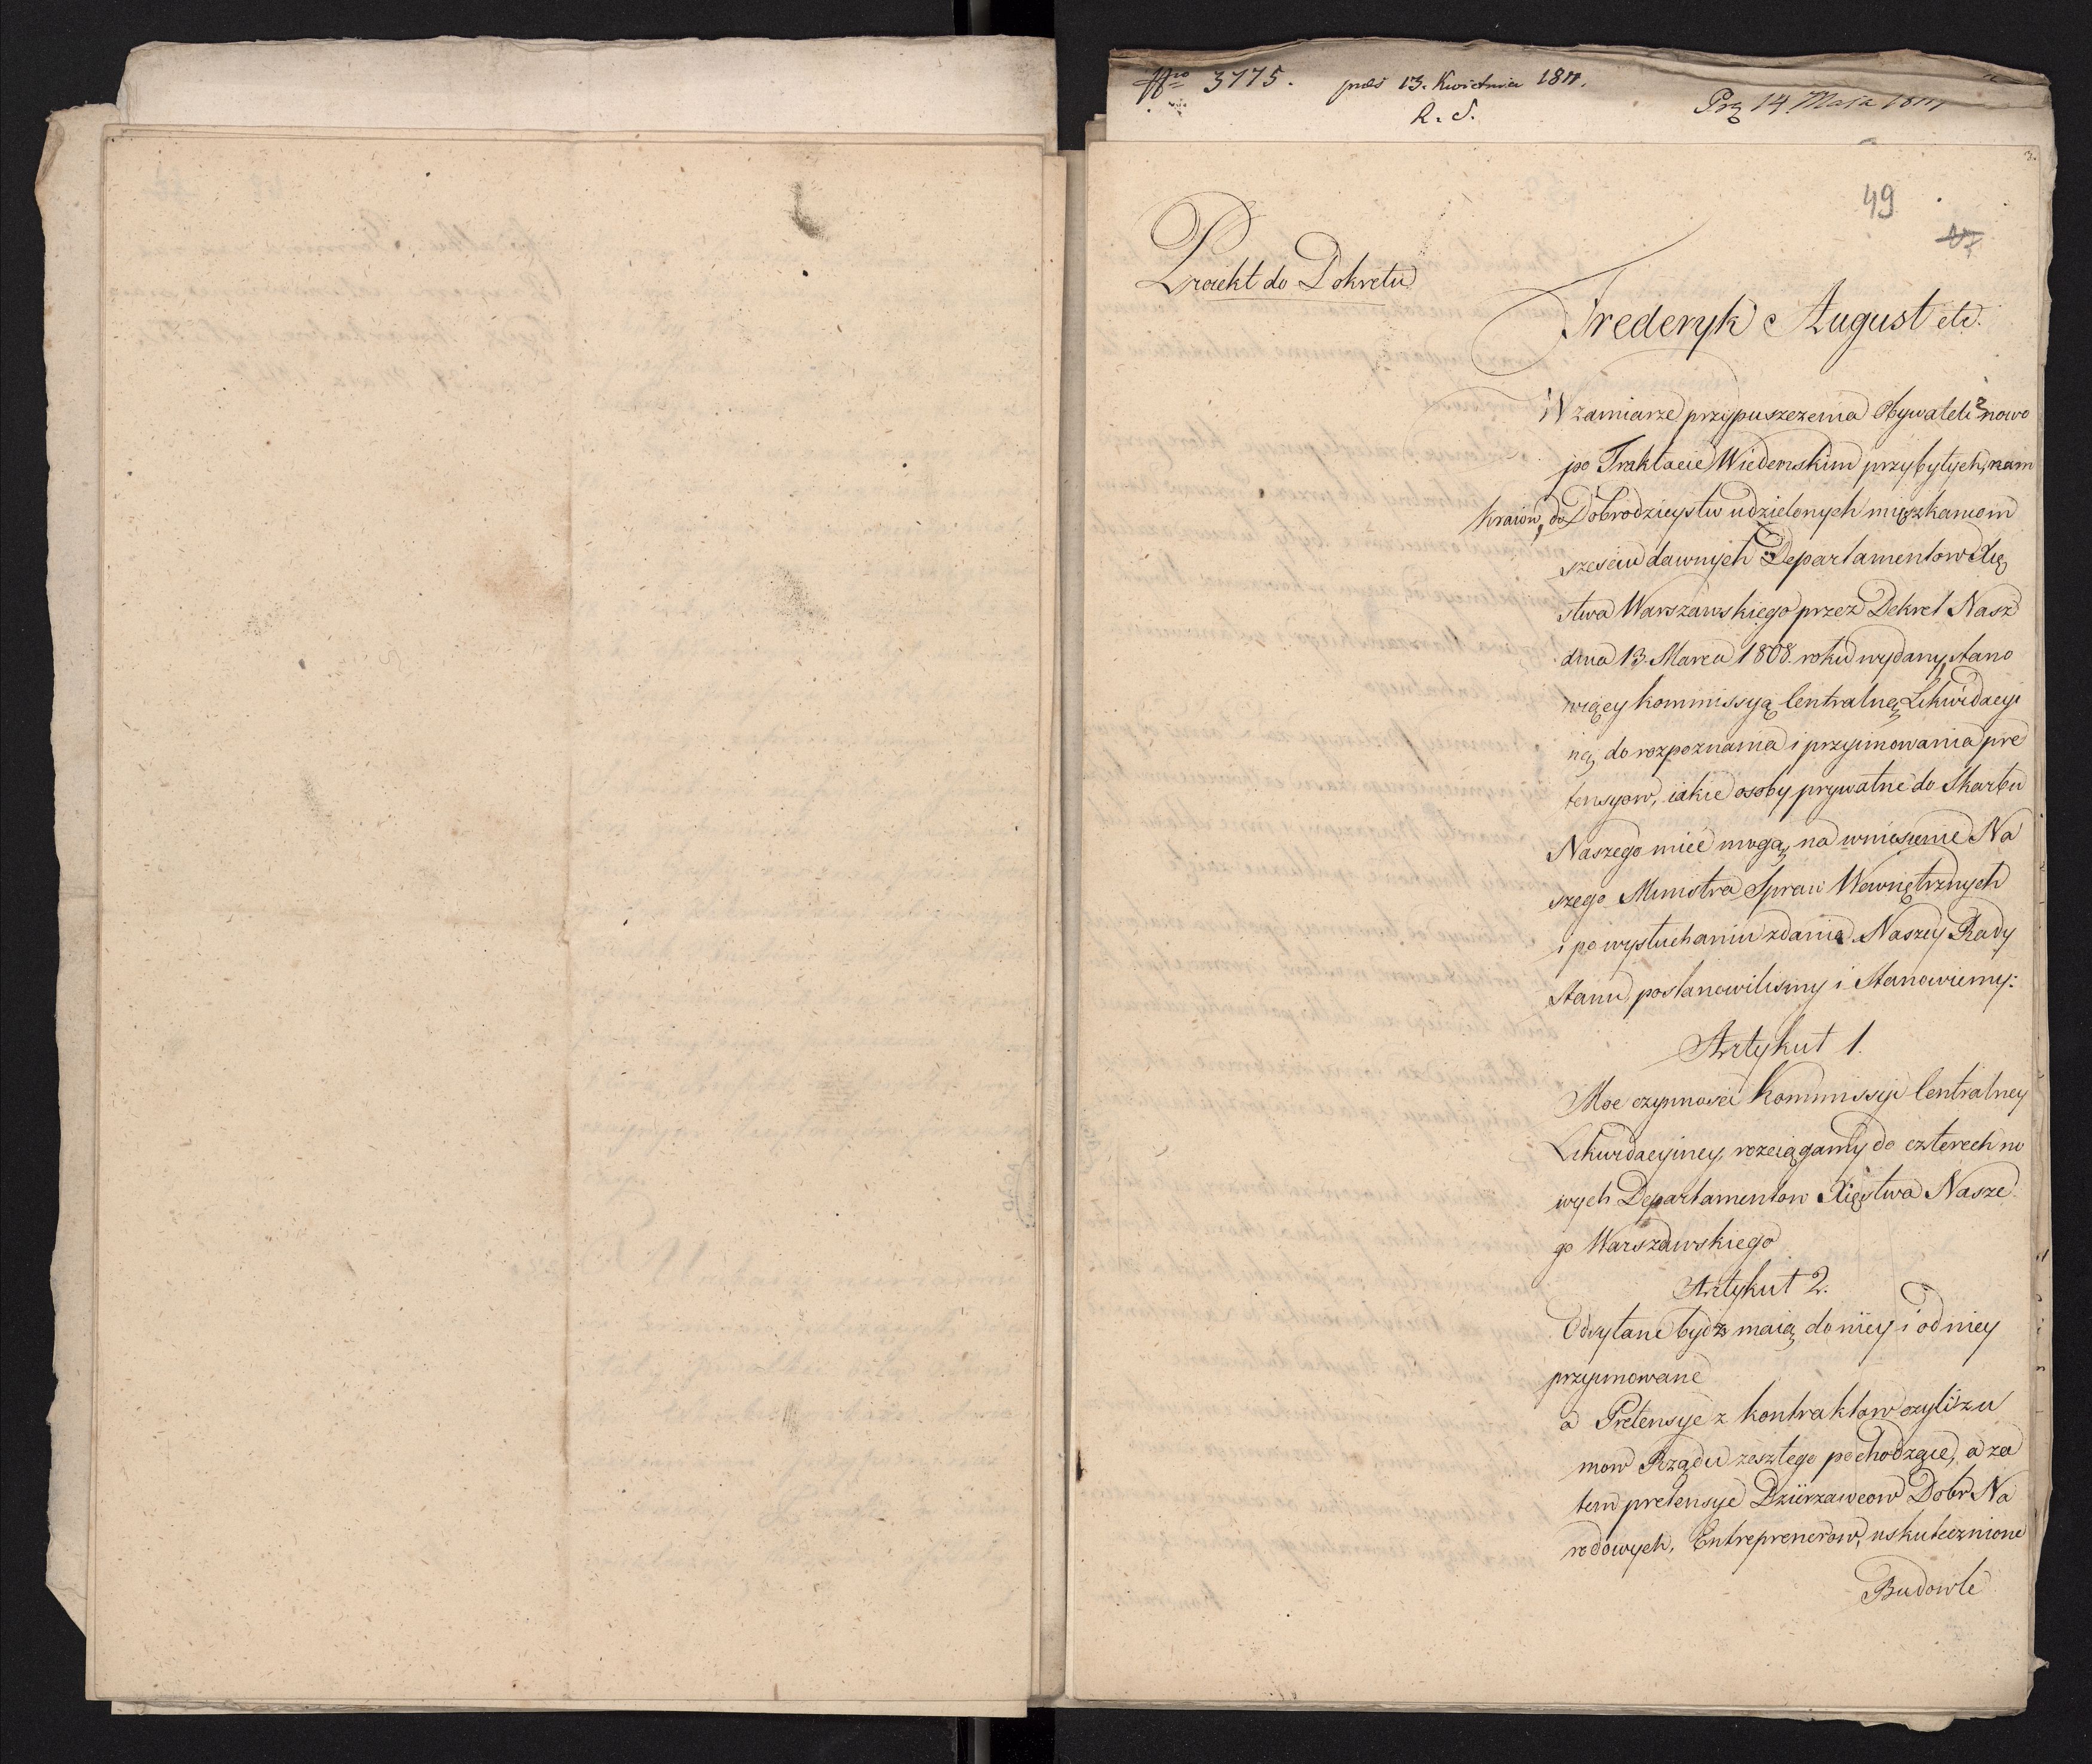 Nro 3775. pręs 13. Kwietnia 1811.
R. S.
Prz 14 Maja 1811
3.
49
Proiekt do Dekretu
Frederyk August etc.
W zamiarze przypuszczenia Obywateli znowo
po Traktacie Wiedenskim przybytych nam
kraiow, do Dobrodzieystw udzielonych mięszkancom
szesciu dawnych Departamentow Xię
stwa Warszawskiego przez Dekret Nasz
dnia 13. Marca 1808. roku wydany, stano
wiący kommissyą Centralną Likwidacyi
ną, do rozpoznania i przyimowania pre
tensyow, iakie osoby prywatne do Skarbu
Naszego mieć mogą, na wniesienie Na
szego Ministra Spraw Wewnętrznych
i po wysłuchaniu zdania Naszey Rady
Stanu, postanowilismy i Stanowiemy:
Artykuł 1.
Moc czynnosci Kommissyi Centralney
Likwidacyiney, rozciągamy do czterech no
wych Departamentow Xięstwa Nasze
go Warszawskiego
Artykuł 2.
Odsyłane bydź maią do niey i od niey
przyimowane
a Pretensye z kontraktow czyli zu
mow Rządu zeszłego pochodzące, a za
tem pretensye Dzierzawcow Dobr Na
rodowych, Entreprenerow, uskutecznione
Budowle